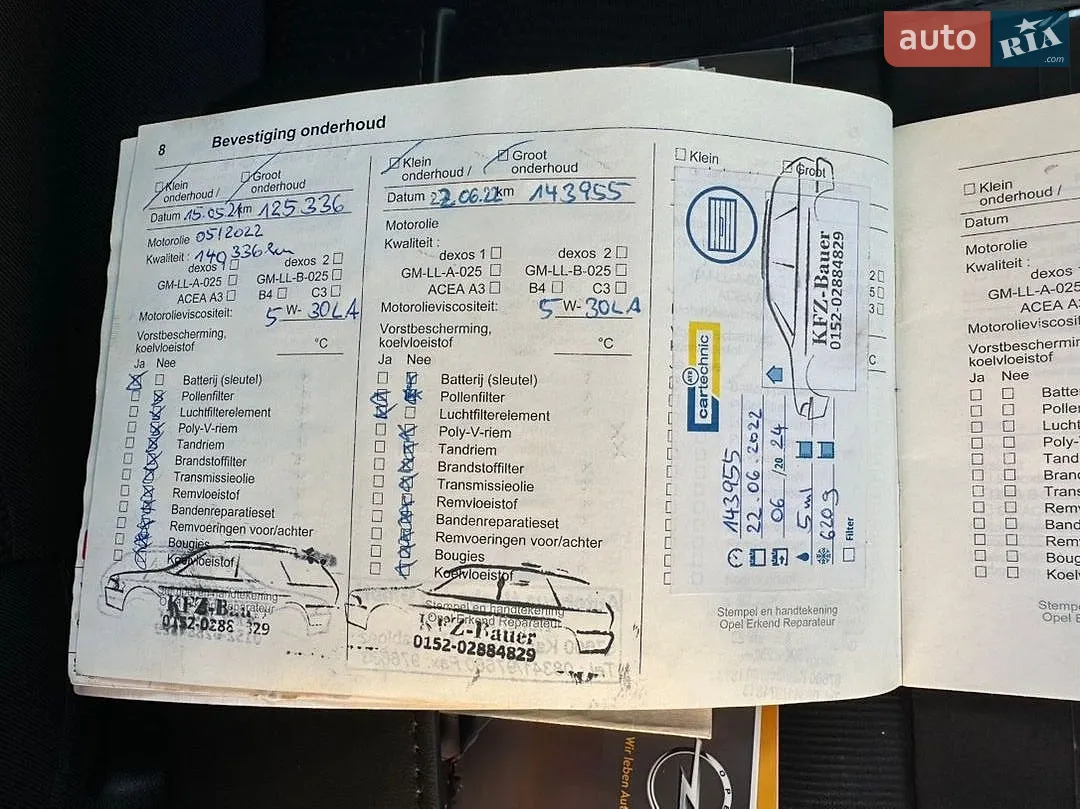 auto RIA .com
8 Bevestiging onderhoud
Klein onderhoud / Groot onderhoud
Datum 15.05.21 km 125 336
Motorolie 05/2022
Kwaliteit : 140 336 km
dexos 1 dexos 2
GM-LL-A-025 GM-LL-B-025
ACEA A3 B4 C3
Motorolieviscositeit: 5 W- 30LA
Vorstbescherming,
koelvloeistof °C
Ja Nee
Batterij (sleutel)
Pollenfilter
Luchtfilterelement
Poly-V-riem
Tandriem
Brandstoffilter
Transmissieolie
Remvloeistof
Bandenreparatieset
Remvoeringen voor/achter
Bougies
Koelvloeistof
Stempel en handtekening
KFZ-Bau
Klein onderhoud / Groot onderhoud
Datum 22.06.22 km 143955
Motorolie
Kwaliteit :
dexos 1 dexos 2
GM-LL-A-025 GM-LL-B-025
ACEA A3 B4 C3
Motorolieviscositeit: 5 W- 30LA
Vorstbescherming,
koelvloeistof °C
Ja Nee
Batterij (sleutel)
Pollenfilter
Luchtfilterelement
Poly-V-riem
Tandriem
Brandstoffilter
Transmissieolie
Remvloeistof
Bandenreparatieset
Remvoeringen voor/achter
Bougies
Koelvloeistof
Stempel en handtekening
Opel Erkend Reparateur
KFZ-Bauer
0152-02884829
Klein Groot
KFZ-Bauer
0152-02884829
ATR cartechnic
143955
22.06.2022
06 /20 24
5 ml
620 g
Filter
Stempel en handtekening
Opel Erkend Reparateur
Klein
onderhoud /
Datum
Motorolie
Kwaliteit :
dexos
GM-LL-A-025
ACEA A3
Motorolieviscosit
Vorstbescherming
koelvloeistof
Ja Nee
Batte
Pollen
Lucht
Poly-
Tand
Bran
Trans
Rem
Band
Rem
Boug
Koel
Stemp
Opel E
Wir leben Aut
OPE